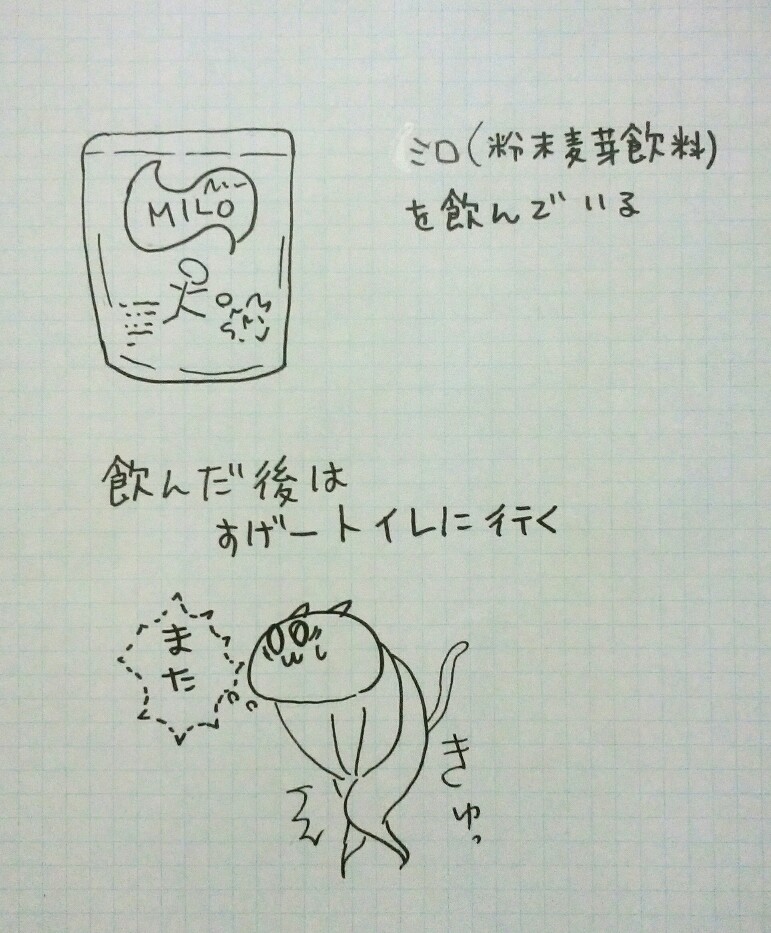 ミロ(粉末麦芽飲料)
を飲んでいる
MILO
飲んだ後は
すげートイレに行く
また
きゅっ